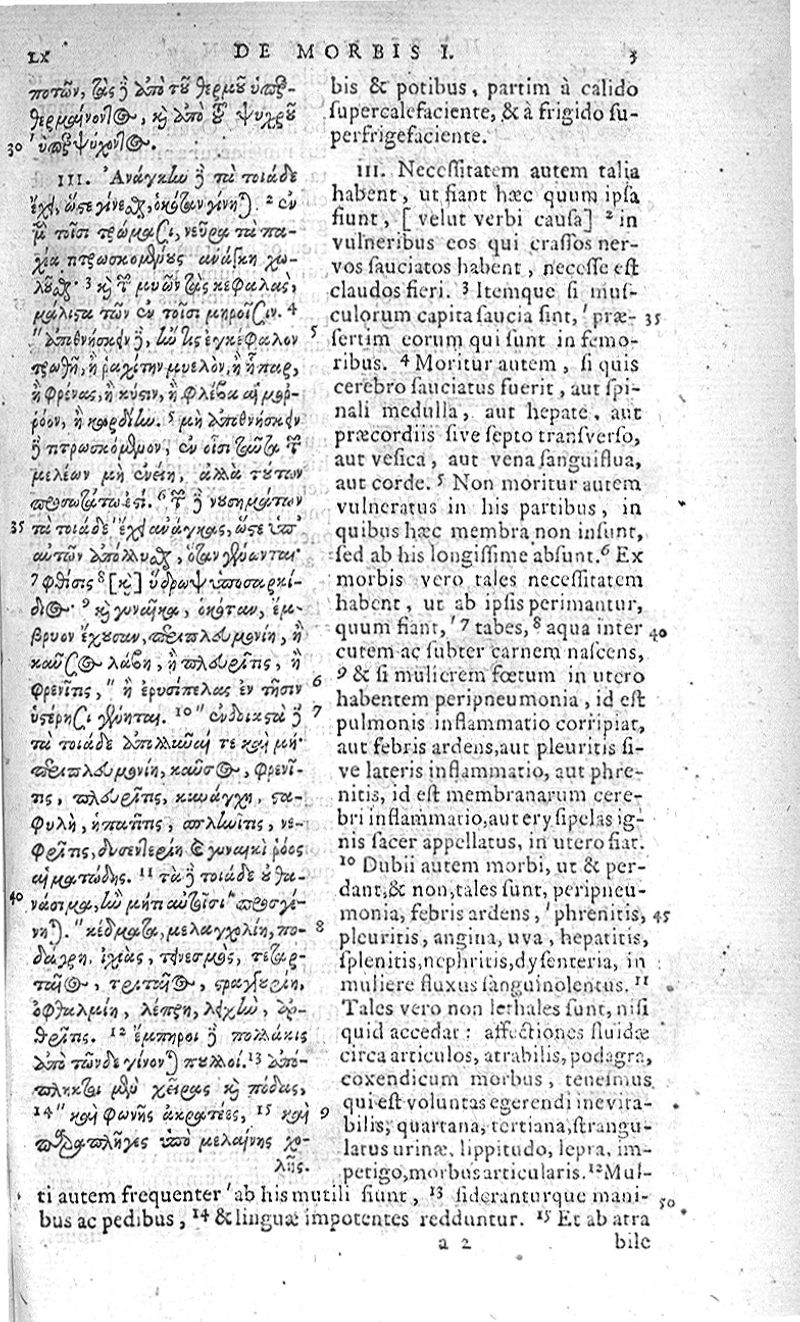 LX DE MORBIS I. 3
ποτῶν, τὰς δὲ ἀπὸ τοῦ θερμοῦ ὑπερ-
θερμαίνοντος, καὶ ἀπὸ τοῦ ψυχροῦ
30 ' ὑπερψύχοντος.
III. Ἀνάγκην δὲ τὰ τοιάδε
ἔχει, ὥστε γίνεσθαι, ὁκόταν γίνηται. 2 ἐν
μὲν τοῖσι τρώμασι, νεῦρα τὰ πα-
χέα τιτρωσκομένους ἀνάγκη χω-
λοῦσθαι· 3 καὶ τῶν μυῶν τὰς κεφαλὰς,
μάλιστα τῶν ἐν τοῖσι μηροῖσιν. 4
" ἀποθνήσκειν δὲ, ἤν τις ἐγκέφαλον 5
τρωθῇ, ἢ ῥαχίτην μυελὸν, ἢ ἧπαρ,
ἢ φρένας, ἢ κύστιν, ἢ φλέβα αἱμόρ-
ροον, ἢ καρδίην. 5 μὴ ἀποθνήσκειν
δὲ τιτρωσκόμενον, ἐν οἷσι ταῦτα τῶν
μελέων μὴ ἐνείη, ἀλλὰ τούτων
προσωτάτω ἐστί. 6 τῶν δὲ νουσημάτων
35 τὰ τοιάδε ' ἔχει ἀνάγκας, ὥστε ὑπ'
αὐτῶν ἀπόλλυσθαι, ὅταν γένωνται·
7 φθίσις 8 [καὶ] ὕδρωψ ὑποσαρκί-
διος· 9 καὶ γυναῖκα, ὁκόταν, ἔμ-
βρυον ἔχουσαν, περιπλευμονίη, ἢ
καῦσος λάβῃ, ἢ πλευρῖτις, ἢ
φρενῖτις, " ἢ ἐρυσίπελας ἐν τῇσιν 6
ὑστέρῃσι γένηται. 10 " ἐνδοιαστὰ δὲ 7
τὰ τοιάδε ἀπολλύναι τε καὶ μή·
περιπλευμονίη, καῦσος, φρενῖ-
τις, πλευρῖτις, κυνάγχη, στα-
φυλὴ, ἡπατῖτις, σπληνῖτις, νε-
φρῖτις, δυσεντερίη καὶ γυναικὶ ῥόος
αἱματώδης. 11 τὰ δὲ τοιάδε οὐ θα-
40 νάσιμα, ἢν μή τι αὐτοῖσι " προσγέ-
νηται. " κέδματα, μελαγχολίη, πο- 8
δάγρη, ἰσχιὰς, τεινεσμὸς, τεταρ-
ταῖος, τριταῖος, στραγγουρίη,
ὀφθαλμίη, λέπρη, λειχὴν, ἀρ-
θρῖτις. 12 ἔμπηροι δὲ πολλάκις
ἀπὸ τῶνδε γίνονται πολλοί. 13 ἀπό-
πληκτοι μὲν χεῖρας καὶ πόδας,
14 " καὶ φωνῆς ἀκρατέες, 15 καὶ 9
παραπλῆγες ὑπὸ μελαίνης χο-
λῆς.
bis & potibus, partim à calido
supercalefaciente, & à frigido su-
perfrigefaciente.
III. Necessitatem autem talia
habent, ut fiant hæc quum ipsa
fiunt, [velut verbi causa] 2 in
vulneribus eos qui crassos ner-
vos sauciatos habent, necesse est
claudos fieri. 3 Itemque si mus-
culorum capita saucia sint, ' præ- 35
sertim eorum qui sunt in femo-
ribus. 4 Moritur autem, si quis
cerebro sauciatus fuerit, aut spi-
nali medulla, aut hepate, aut
præcordiis sive septo transverso,
aut vesica, aut vena sanguiflua,
aut corde. 5 Non moritur autem
vulneratus in his partibus, in
quibus hæc membra non insunt,
sed ab his longissime absunt. 6 Ex
morbis vero tales necessitatem
habent, ut ab ipsis perimantur,
quum fiant, ' 7 tabes, 8 aqua inter 40
cutem ac subter carnem nascens,
9 & si mulierem fœtum in utero
habentem peripneumonia, id est
pulmonis inflammatio corripiat,
aut febris ardens, aut pleuritis si-
ve lateris inflammatio, aut phre-
nitis, id est membranarum cere-
bri inflammatio, aut erysipelas ig-
nis sacer appellatus, in utero fiat.
10 Dubii autem morbi, ut & per-
dant, & non, tales sunt, peripneu-
monia, febris ardens, ' phrenitis, 45
pleuritis, angina, uva, hepatitis,
splenitis, nephritis, dysenteria, in
muliere fluxus sanguinolentus. 11
Tales vero non lethales sunt, nisi
quid accedat: affectiones fluidæ
circa articulos, atrabilis, podagra,
coxendicum morbus, tenesmus
qui est voluntas egerendi inevita-
bilis, quartana, tertiana, strangu-
latus urinæ, lippitudo, lepra, im-
petigo, morbus articularis. 12 Mul-
ti autem frequenter ' ab his mutili fiunt, 13 sideranturque mani- 50
bus ac pedibus, 14 & linguæ impotentes redduntur. 15 Et ab atra
a 2 bile